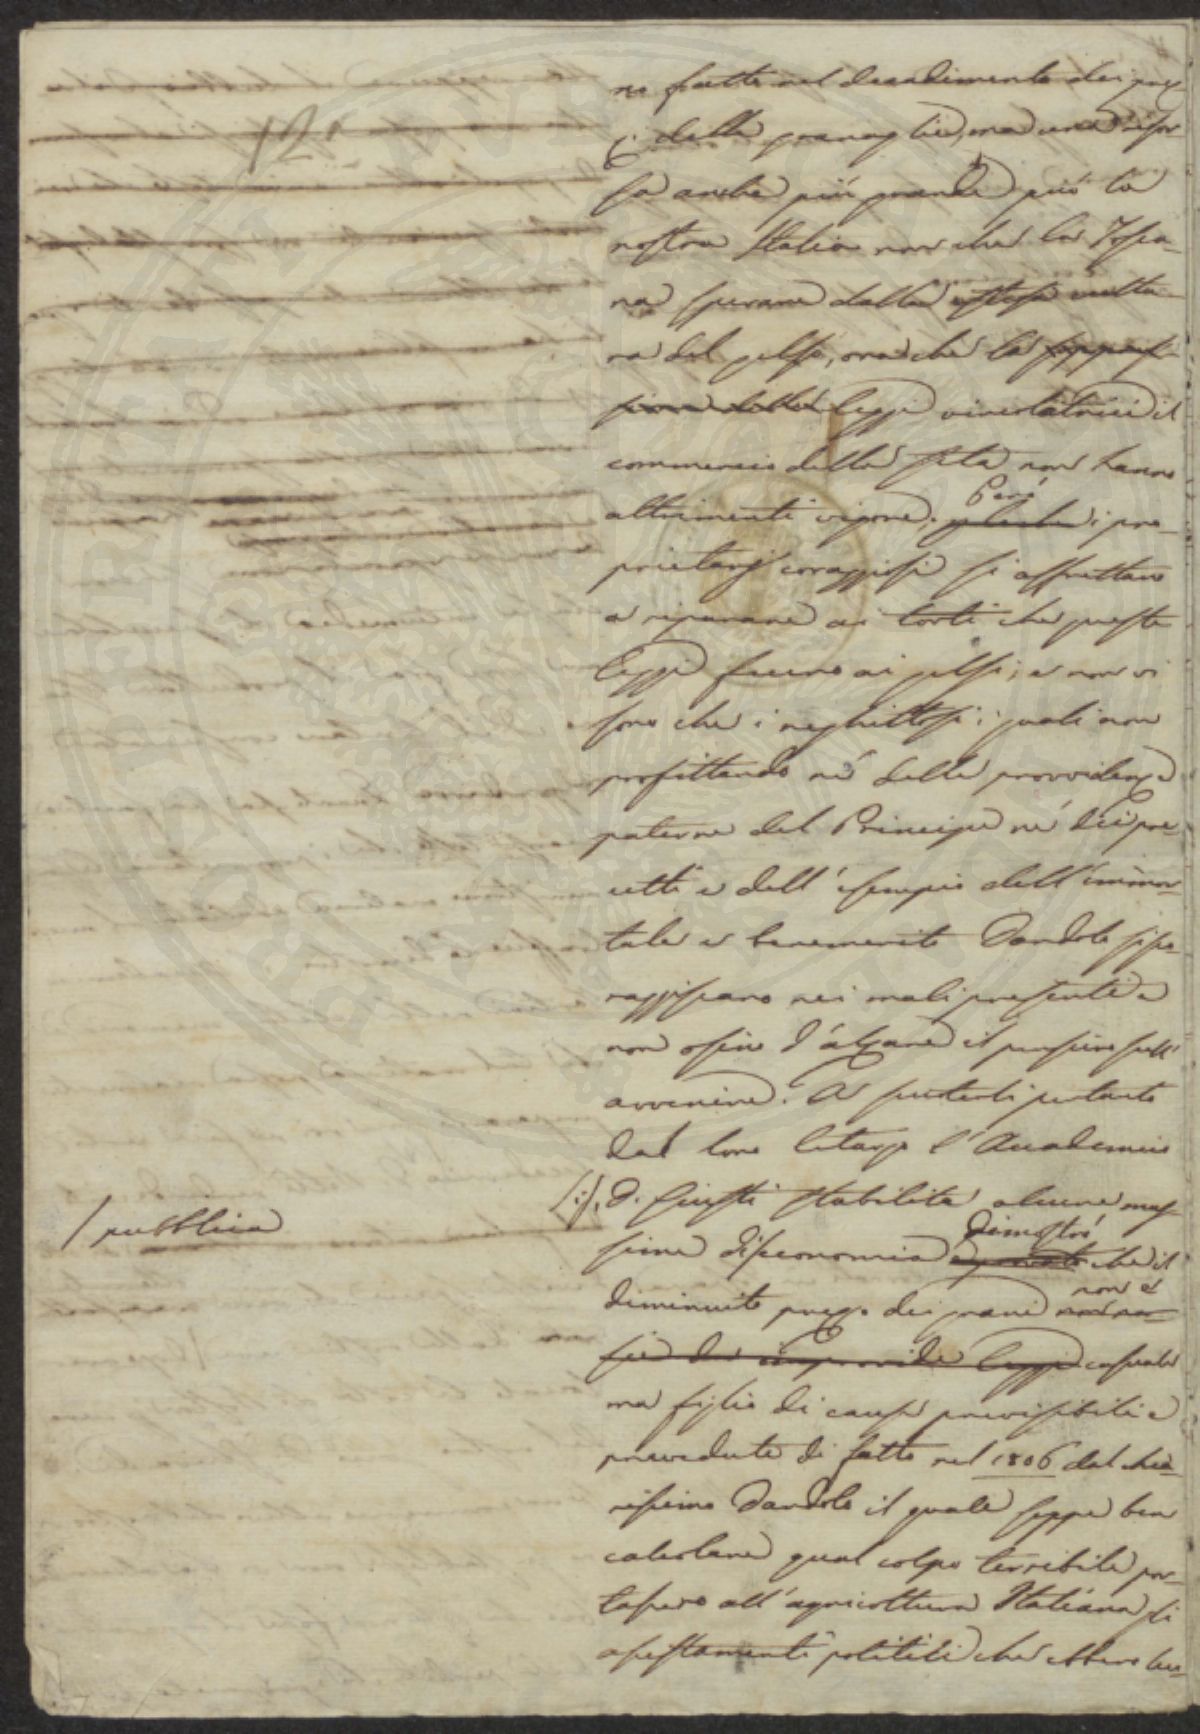 12
ne fatte nel decadimento dei prez
zi delle granaglie, ma una risor
sa anche più grande può la
nostra Italia non che la Tosca-
na sperare dalla estesa cultu-
ra del gelso, ora che le soppres-
sione delle leggi vincolatrici il
commercio della seta non hanno
altrimenti vigore. Però i pro-
prietarj coraggiosi si affrettano
a riparare ai torti che queste
leggi fecero ai gelsi, e non vi
sono che i neghittosi i quali non
profittando né delle provvidenze
paterne del Principe né dei pre-
cetti e dell'esempio dell'immor-
tale e benemerito Dandolo si sco-
raggiscano nei mali presenti e
non osino d'alzare il pensiero sull'
avvenire. A scuoterli pertanto
dal loro letargo l'Accademico
D. Giusti stabilite alcune mas-
sime di economia dimostrò che il
/ pubblica
diminuito prezzo dei grani non è
sia da improvide leggi casuale
ma figlio di cause previsibili e
prevedute di fatto nel 1806 dal chia-
rissimo Dandolo il quale seppe ben
calcolare qual colpo terribile por-
tassero all'agricoltura Italiana gli
assestamenti politici che ebbero luo-